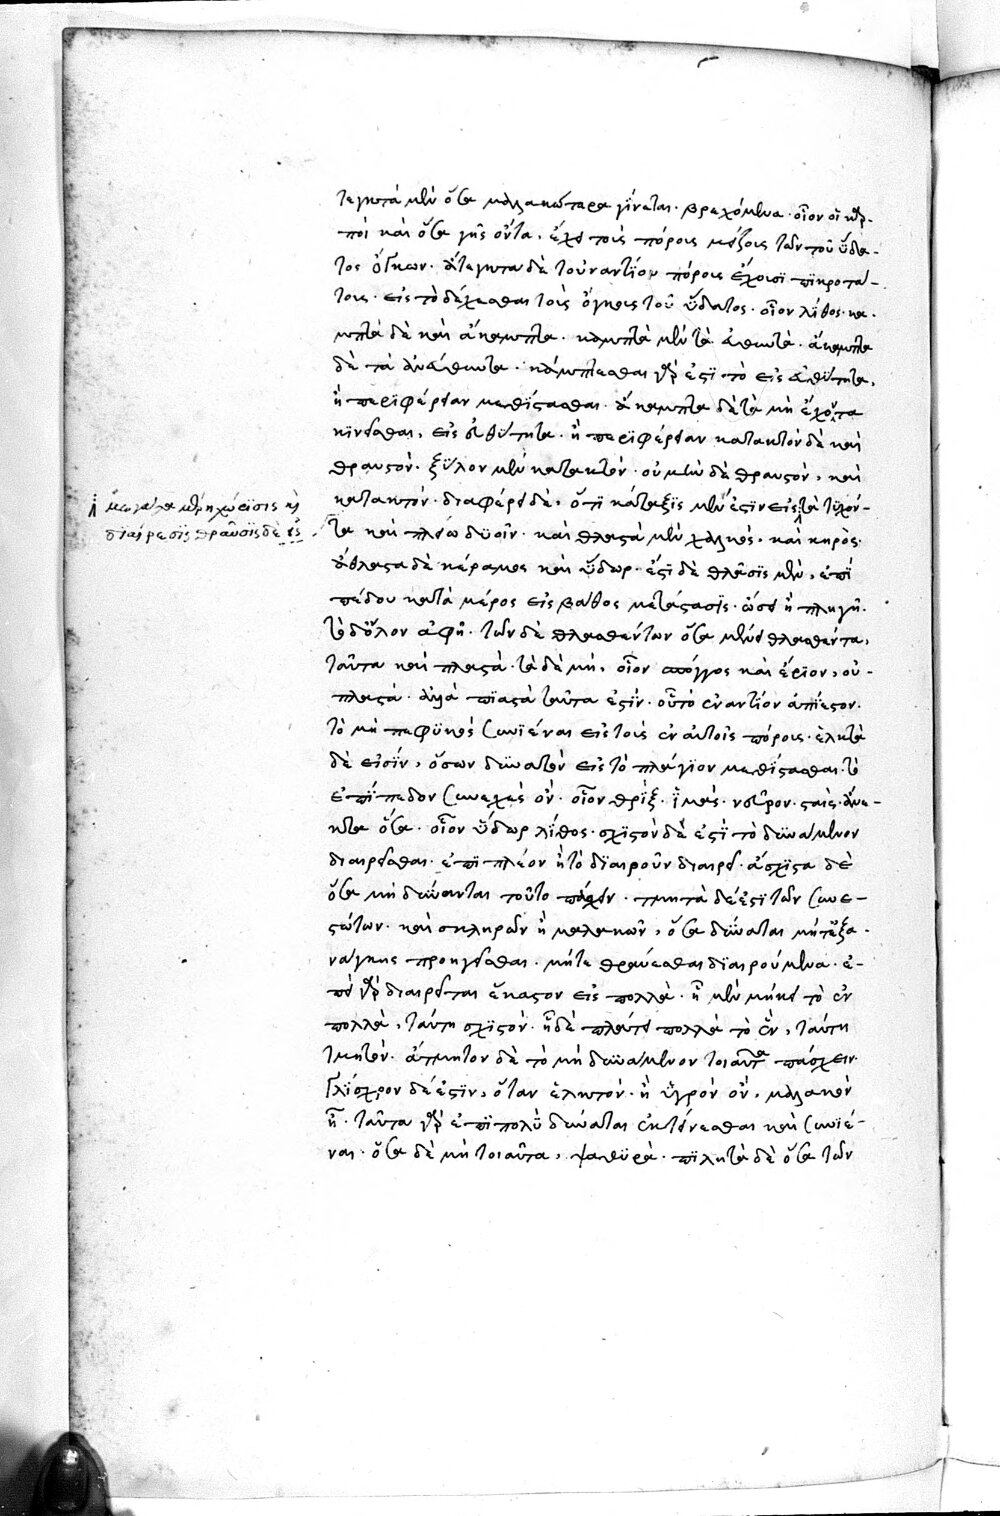 τεγκτὰ μὲν ὅσα μαλακώτερα γίνεται βρεχόμενα· οἷον οἱ καρ-
ποὶ καὶ ὅσα γῆς ὄντα, ἔχει τοὺς πόρους μείζους τῶν τοῦ ὕδα-
τος ὄγκων· ἄτεγκτα δὲ τοὐναντίον πόρους ἔχουσι πικροτά-
τους· εἰς τὸ δέχεσθαι τοὺς ὄγκους τοῦ ὕδατος· οἷον λίθος· κα-
μπτὰ δὲ καὶ ἄκαμπτα· καμπτὰ μὲν τὰ εὐθυντὰ· ἄκαμπτα
δὲ τὰ ἀνεύθυντα· κάμπτεσθαι γάρ ἐστὶ τὸ εἰς εὐθύτητα,
ἢ περιφέρειαν μεθίστασθαι· ἄκαμπτα δὲ τὰ μὴ ἔχοντα
κινεῖσθαι, εἰς εὐθύτητα· ἢ περιφέρειαν κατακτὸν δὲ καὶ
θραυστόν· ξύλον μὲν κατακτόν· οὐ μὲν δὲ θραυστόν, καὶ
κατακτόν· διαφέρει δὲ, ὅτι κάταξις μέν ἐστιν εἰς τὰ τυχόν-
τα καὶ πλείω δυοῖν· καὶ θλαστὰ μὲν χαλκός, καὶ κηρός·
ἄθλαστα δὲ κέραμος καὶ ὕδωρ· ἔστι δὲ θλᾶσις μὲν, ἐπὶ
πέδου κατὰ μέρος εἰς βάθος μετάστασις· ὥσει ἢ πληγῇ·
τὸ δ' ὅλον ἁφῇ· τῶν δὲ θλασθέντων ὅσα μένει θλασθέντα,
ταῦτα καὶ πλαστὰ· τὰ δὲ μή, οἷον σπόγγος καὶ ἔριον, οὐ
πλαστά· ἀλλὰ πιαστὰ ταῦτα ἐστίν· οὗ τὸ ἐναντίον ἀπίεστον·
τὸ μὴ πεφυκὸς συνϊέναι εἰς τοὺς ἐν αὐτοῖς πόρους· ἑλκτὰ
δὲ εἰσίν, ὅσων δυνατὸν εἰς τὸ πλάγιον μεθίστασθαι τὸ
ἐπίπεδον συνεχὲς ὄν· οἷον θρίξ· ἱμάς· νεῦρον· σταὶς· ἄνε-
κτα ὅσα· οἷον ὕδωρ λίθος· σχιστὸν δέ ἐστι τὸ δυνάμενον
διαιρεῖσθαι· ἐπὶ πλέον ἢ τὸ διαιροῦν διαιρεῖ· ἄσχιστα δὲ
ὅσα μὴ δύνανται τοῦτο παθεῖν· τμητὰ δέ ἐστι τῶν συνε-
στώτων· καὶ σκληρῶν ἢ μαλακῶν, ὅσα δύναται μήτ' ἐξα-
νάγκης προηγεῖσθαι· μήτε θραύεσθαι διαιρούμενα· ἐ-
πεὶ γὰρ διαιρεῖται ἕκαστον εἰς πολλὰ· ᾗ μὲν μήκει τὸ ἓν
πολλὰ, ταύτῃ σχιστόν· ᾗ δὲ πλάτει πολλὰ τὸ ἓν, ταύτῃ
τμητόν· ἄτμητον δὲ τὸ μὴ δυνάμενον τοιαῦτα πάσχειν·
Γλίσχρον δέ ἐστιν, ὅταν ἑλκτὸν· ἢ ὑγρὸν ὂν, μαλακὸν
ᾖ· ταῦτα γὰρ ἐπιπολὺ δύναται ἐκτείνεσθαι καὶ συνϊέ-
ναι· ὅσα δὲ μὴ τοιαῦτα, ψαθυρά· πιλητὰ δὲ ὅσα τῶν
εἰς μεγάλα μέρη χώρισις καὶ
διαίρεσις θραῦσις δὲ εἰς